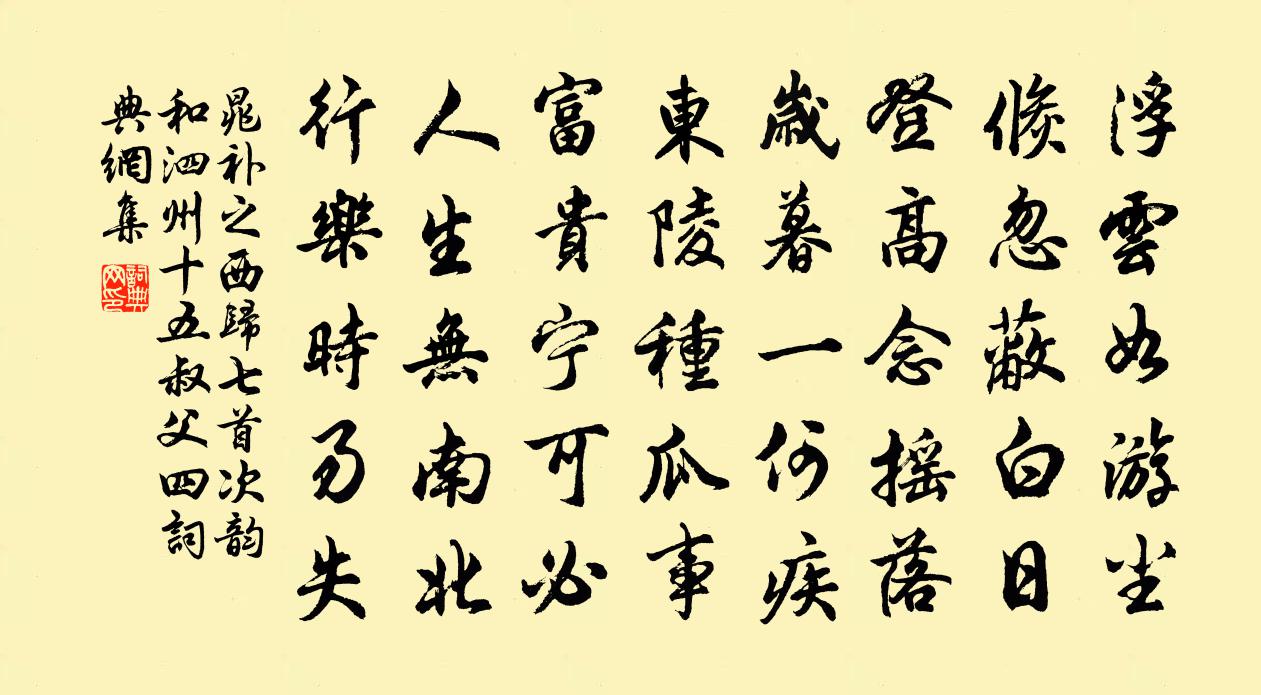 浮雲如游尘
倏忽蔽白日
登高念摇落
歲暮一何疾
東陵種瓜事
富貴宁可必
人生無南北
行樂時勿失
晁补之西歸七首次韵
和泗州十五叔父四詞
典網集
詞典
网印